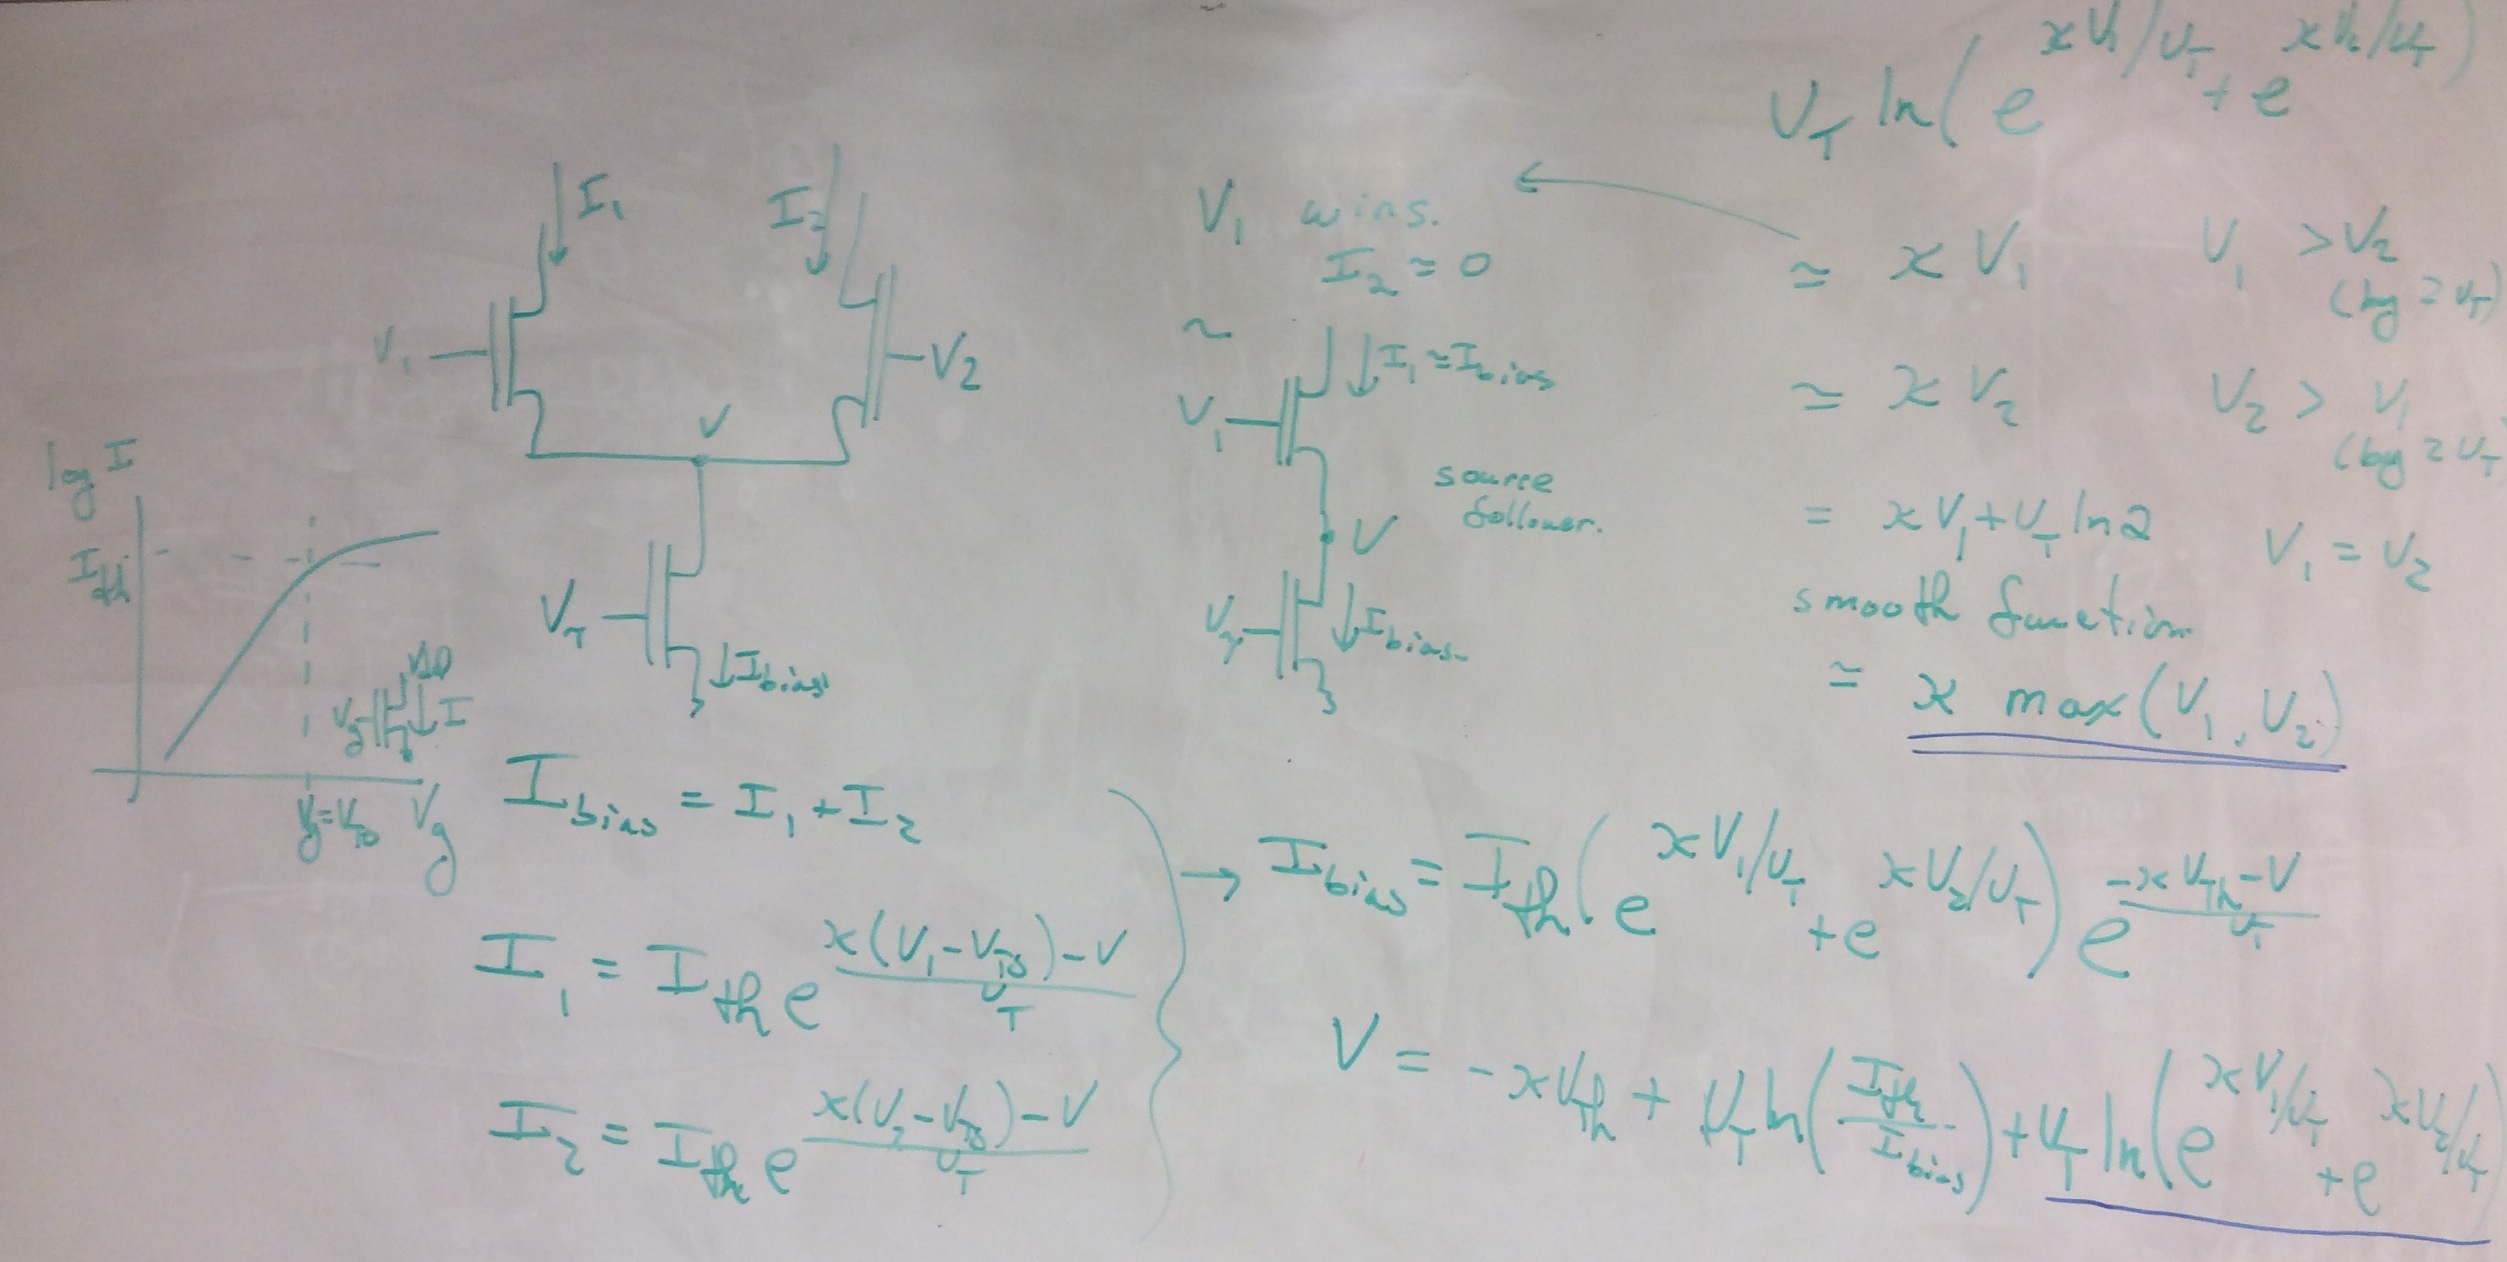 I₁
I₂
V₁
V₂
V
V_τ
↓I_bias
log I
I_th
V_g
↓I
V_g=V_T0
V_g
I_bias = I₁ + I₂
I₁ = I_th e^{(ϰ(V₁-V_T0)-V)/U_T}
I₂ = I_th e^{(ϰ(V₂-V_T0)-V)/U_T}
V₁ wins.
I₂ ≃ 0
~
↓I₁≃I_bias
V₁
source
follower.
V
↓I_bias
U_T ln(e^{ϰV₁/U_T} + e^{ϰV₂/U_T})
≃ ϰV₁ V₁ > V₂
≃ ϰV₂ V₂ > V₁
= ϰV₁ + U_T ln2 V₁ = V₂
smooth function
≃ ϰ max(V₁, V₂)
→ I_bias = I_th(e^{ϰV₁/U_T} + e^{ϰV₂/U_T}) e^{(-ϰV_Th-V)/U_T}
V = -ϰV_Th + U_T ln(I_th/I_bias) + U_T ln(e^{ϰV₁/U_T} + e^{ϰV₂/U_T})